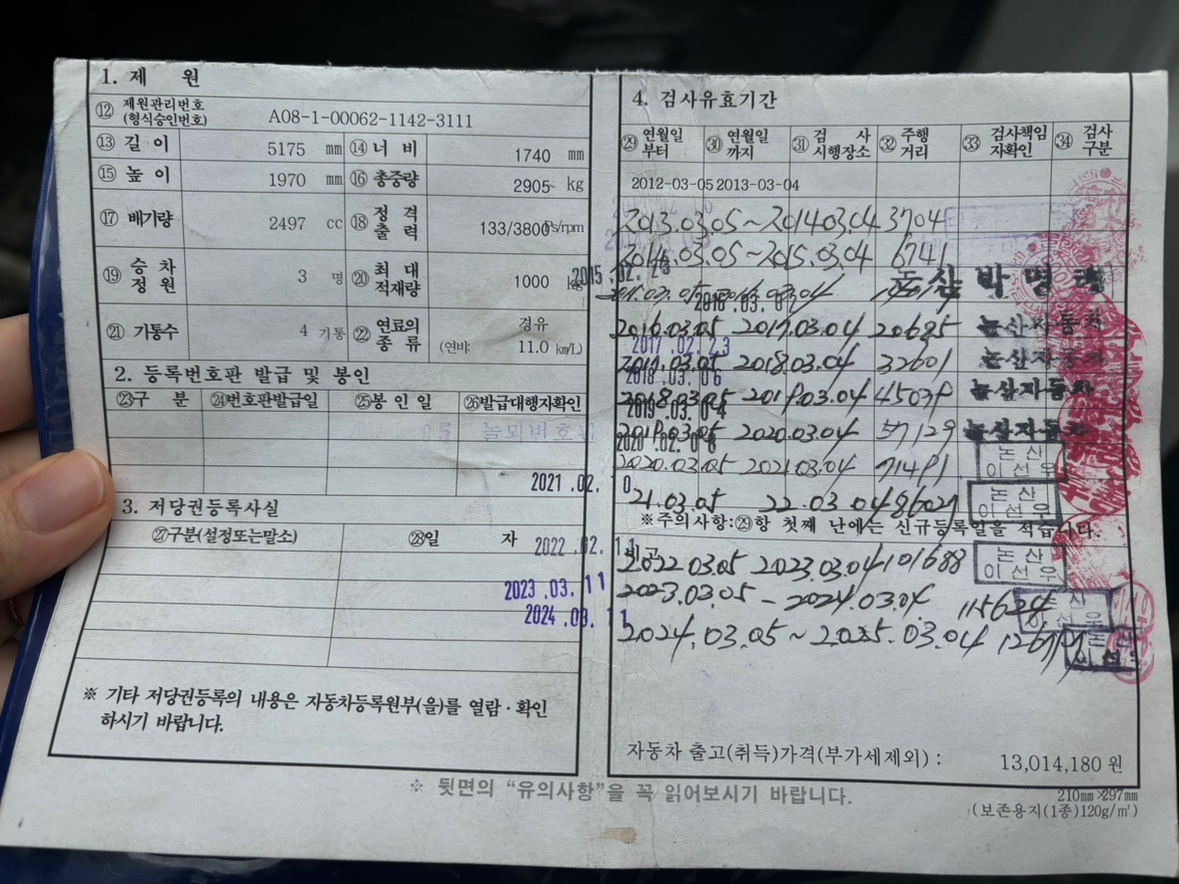 1. 제 원
⑫ 제원관리번호 (형식승인번호) A08-1-00062-1142-3111
⑬ 길 이 5175 mm ⑭ 너 비 1740 mm
⑮ 높 이 1970 mm ⑯ 총중량 2905 kg
⑰ 배기량 2497 cc ⑱ 정 격 출 력 133/3800Ps/rpm
⑲ 승 차 정 원 3 명 ⑳ 최 대 적재량 1000 kg
㉑ 기통수 4 기통 ㉒ 연료의 종 류 경유 (연비: 11.0 km/L)
2. 등록번호판 발급 및 봉인
㉓구 분 ㉔번호판발급일 ㉕봉 인 일 ㉖발급대행자확인
3. 저당권등록사실
㉗구분(설정또는말소) ㉘일 자
※ 기타 저당권등록의 내용은 자동차등록원부(을)를 열람·확인
하시기 바랍니다.
4. 검사유효기간
㉙ 연월일 부터 ㉚ 연월일 까지 ㉛ 검 사 시행장소 ㉜ 주행 거리 ㉝ 검사책임 자확인 ㉞ 검사 구분
2012-03-05 2013-03-04
2013.03.05~2014.03.04 3704
2014.03.05~2015.03.04 6741
2015.02.
2016.03.05 2017.03.04 20685 논산자동차
2017.02.23
2017.03.05 2018.03.04 32601 논산자동차
2018.03.06
2018.03.05 2019.03.04 45039 논산자동차
2019.03.04
2019.03.05 2020.03.04 57129 논산자동차
2020.02.06
2020.03.05 2021.03.04 71491 논산 이선우
2021.02.10
21.03.05 22.03.04 86027 논산 이선우
※주의사항:㉙항 첫째 난에는 신규등록일을 적습니다.
비고
2022.02.11
2022.03.05 2023.03.04 101688 논산 이선우
2023.03.11
2023.03.05 - 2024.03.04 115624 논산
2024.03.11
2024.03.05~2025.03.04
자동차 출고(취득)가격(부가세제외) : 13,014,180 원
※ 뒷면의 “유의사항”을 꼭 읽어보시기 바랍니다.
210mm×297mm
(보존용지(1종)120g/㎡)